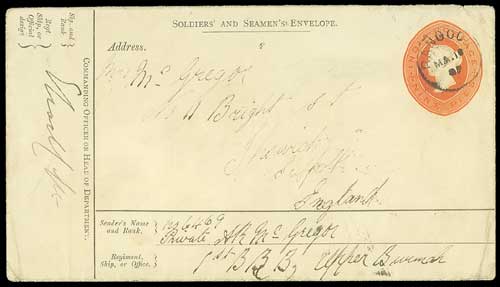 Soldiers' and Seamen's Envelope.
Address.
Mrs McGregor
No 11 Bright St
Ipswich
Suffolk
England
Sender's Name and Rank.
Private A McGregor
Regiment, Ship, or Office.
1st B R B, Upper Burmah
Sig. and Rank
Regt Ship, or Official desigt
Commanding Officer or Head of Department.
MA 19